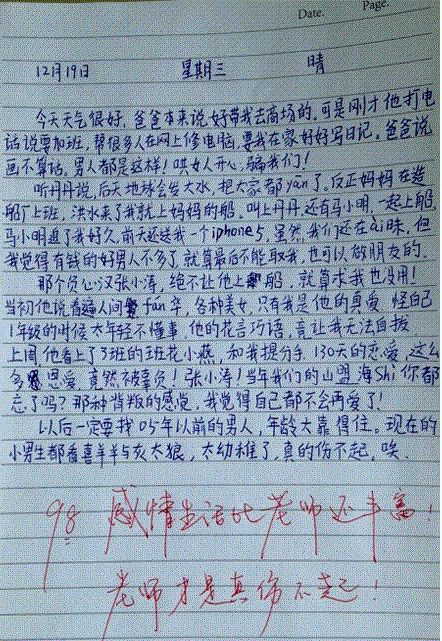 Date.    Page.
12月19日    星期三    晴
今天天气很好,爸爸本来说好带我去商场的,可是刚才他打电
话说要加班,帮很多人在网上修电脑,要我在家好好写日记。爸爸说
画不算话,男人都是这样!哄女人开心,骗我们!
听丹丹说,后天地球会发大水,把大家都yān了。反正妈妈在造
船厂上班,洪水来了我就上妈妈的船。叫上丹丹,还有马小明,一起上船,
马小明追了我好久,前天还送我一个iphone5,虽然我们还在ai昧,但
我觉得有钱的好男人不多了,就算最后不能取我,也可以做朋友的。
那个负心汉张小涛,绝不让他上船,就算求我也没用!
当初他说看遍人间fán华,各种美女,只有我是他的真爱,怪自己
1年级的时候太年轻不懂事,他的花言巧语,竟让我无法自拔
上周他看上了3班的班花小燕,和我提分手,130天的恋爱,这么
多恩爱,竟然不被辜负!张小涛!当年我们的山盟海Shi你都
忘了吗?那种背叛的感觉,我觉得自己都不会再爱了!
以后一定要找05年以前的男人,年龄大靠得住。现在的
小男生都看喜羊羊与灰太狼,太幼稚了,真的伤不起,唉.
98 感情生活比老师还丰富!
老师才是真伤不起!